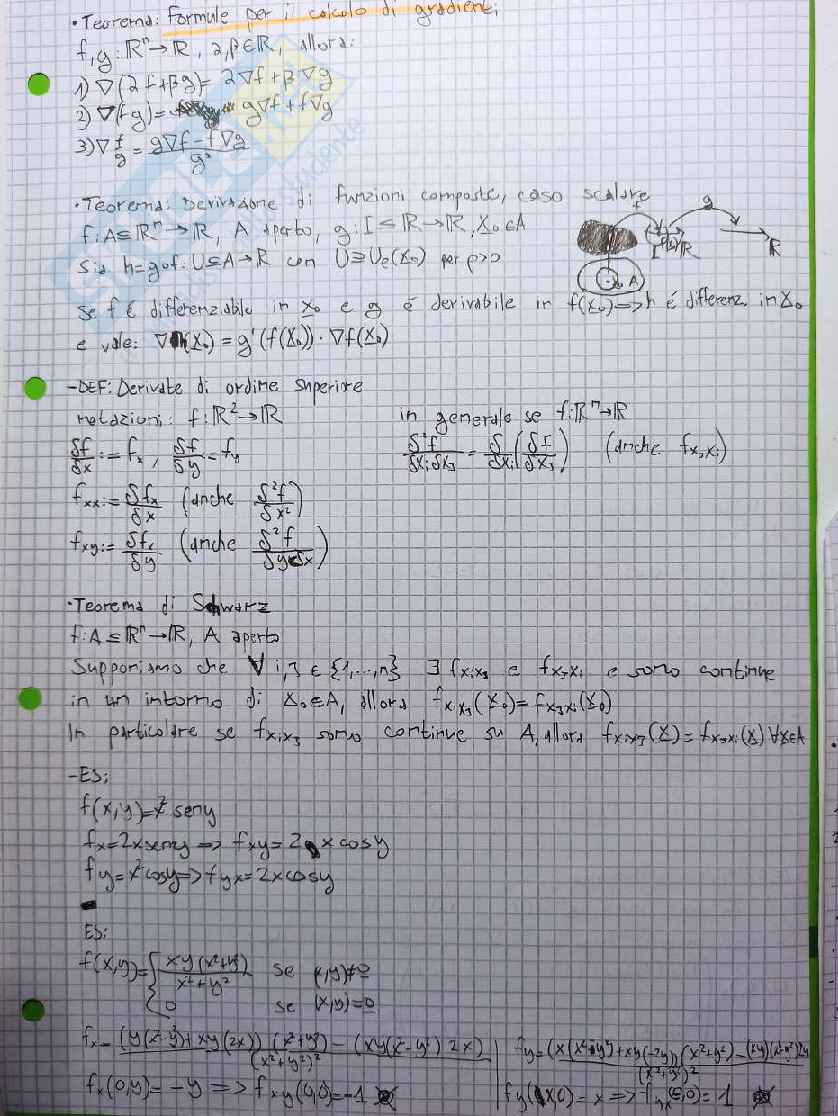 • Teorema: Formule per i calcolo di gradienti
f, g: ℝⁿ→ℝ, α,β∈ℝ, allora:
1) ∇(αf+βg)= α∇f+β∇g
2) ∇(fg)= g∇f+f∇g
3) ∇ f/g = (g∇f-f∇g)/g²
• Teorema: Derivazione di funzioni composte, caso scalare
f: A⊆ℝⁿ→ℝ, A aperto, g: I⊆ℝ→ℝ, x₀∈A
Sia h=g∘f: U⊆A→ℝ con U≡Uρ(x₀) per ρ>0
f g I ℝ ℝ x₀ A
se f é differenziabile in x₀ e g é derivabile in f(x₀)=>h é differenz in x₀
e vale: ∇h(x₀)=g'(f(x₀))·∇f(x₀)
-DEF: Derivate di ordine superiore
notazioni: f:ℝ²→ℝ in generale se f:ℝⁿ→ℝ
δf/δx:=fx, δf/δy=fy δ²f/δxiδxj = δ/δxi(δf/δxj) (anche fxjxi)
fxx:=δfx/δx (anche δ²f/δx²)
fxy:=δfx/δy (anche δ²f/δyδx)
• Teorema di Schwarz
f: A⊆ℝⁿ→ℝ, A aperto
Supponiamo che ∀ i,j ∈ {1,...,n} ∃ fxixj e fxjxi e sono continue
in un intorno di x₀∈A, allora fxixj(x₀)=fxjxi(x₀)
In particolare se fxixj sono continue su A, allora fxixj(x)=fxjxi(x) ∀x∈A
-ES:
f(x,y)=x² seny
fx=2xseny => fxy=2xcosy
fy=x²cosy=>fyx=2xcosy
ES:
f(x,y)={ xy(x²-y²)/(x²+y²) se (x,y)≠0
0 se (x,y)=0
fx= ((y(x²-y²)+xy(2x))(x²+y²)-(xy(x²-y²)2x))/(x²+y²)² | fy=(x(x²-y²)+xy(-2y))(x²+y²)-(xy)(x²-y²)2y/(x²+y²)²
fx(0,y)=-y => fxy(0,0)=-1 | fy(x,0)=x => fyx(0,0)=1